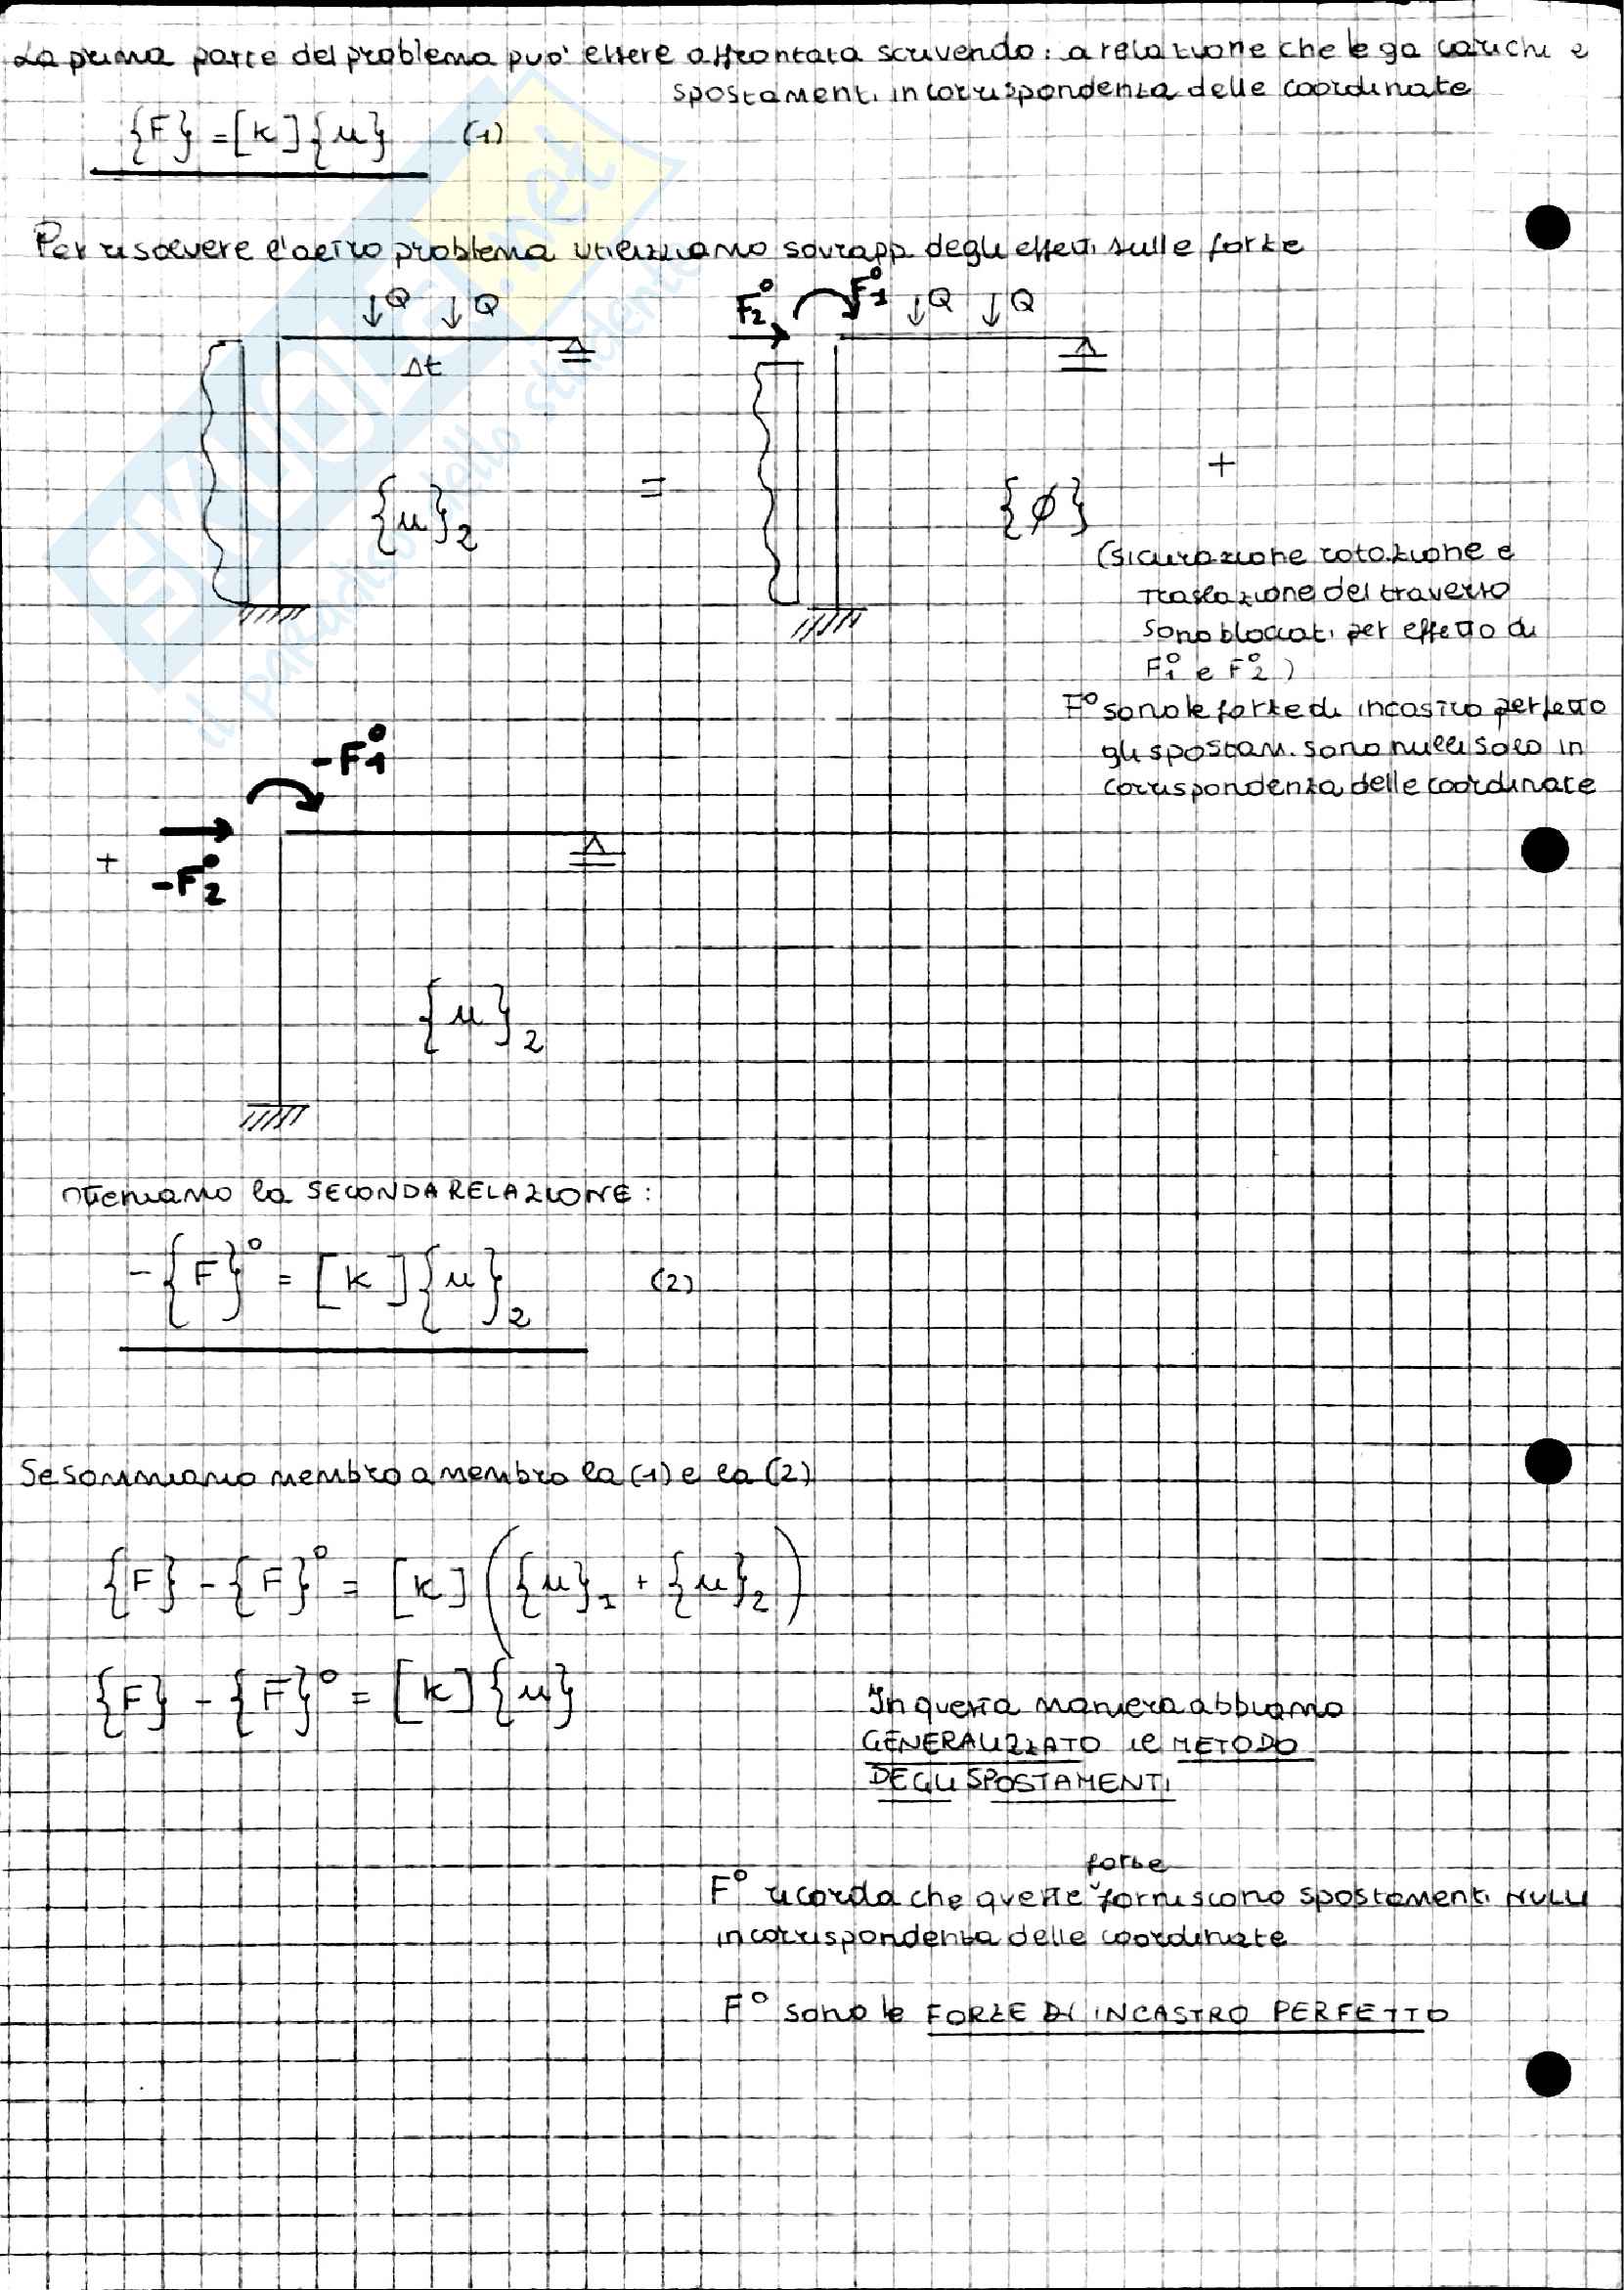 La prima parte del problema può essere affrontata scrivendo: a relazione che lega carichi e
spostamenti in corrispondenza delle coordinate
{F} = [K]{u} (1)
Per risolvere l'altro problema utilizziamo sovrapp. degli effetti sulle forze
↓Q ↓Q
F2° F1° ↓Q ↓Q
Δt
{u}2 = {ϕ} +
(si curazione rotazione e
traslazione del traverso
sono bloccati per effetto di
F1° e F2°)
F° sono le forze di incastro perfetto
gli spostam. sono nulli solo in
corrispondenza delle coordinate
-F1°
+ -F2°
{u}2
otteniamo la SECONDA RELAZIONE:
-{F}° = [K]{u}2 (2)
Se sommiamo membro a membro la (1) e la (2)
{F} - {F}° = [K]({u}1 + {u}2)
{F} - {F}° = [K]{u}
In questa maniera abbiamo
GENERALIZZATO il METODO
DEGLI SPOSTAMENTI
forze
F° ricorda che queste forniscono spostamenti NULLI
in corrispondenza delle coordinate
F° sono le FORZE DI INCASTRO PERFETTO
SKUOLA.net
il paradiso dello studente